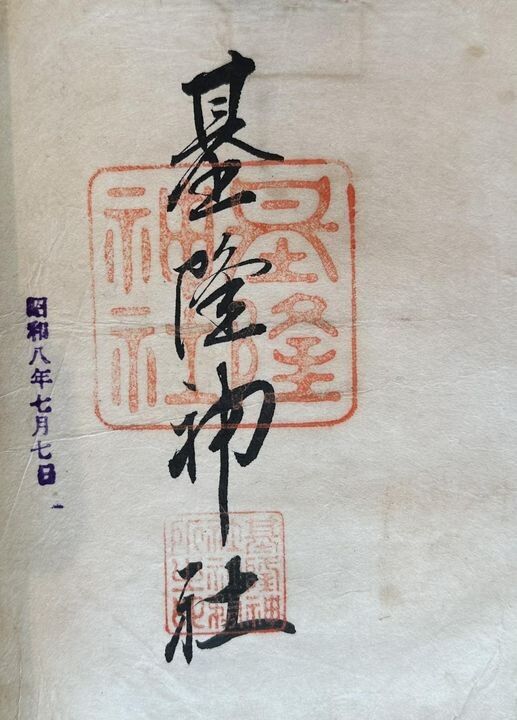 基隆神社
基隆
神社
基隆神
社社務
所之印
昭和八年七月七日